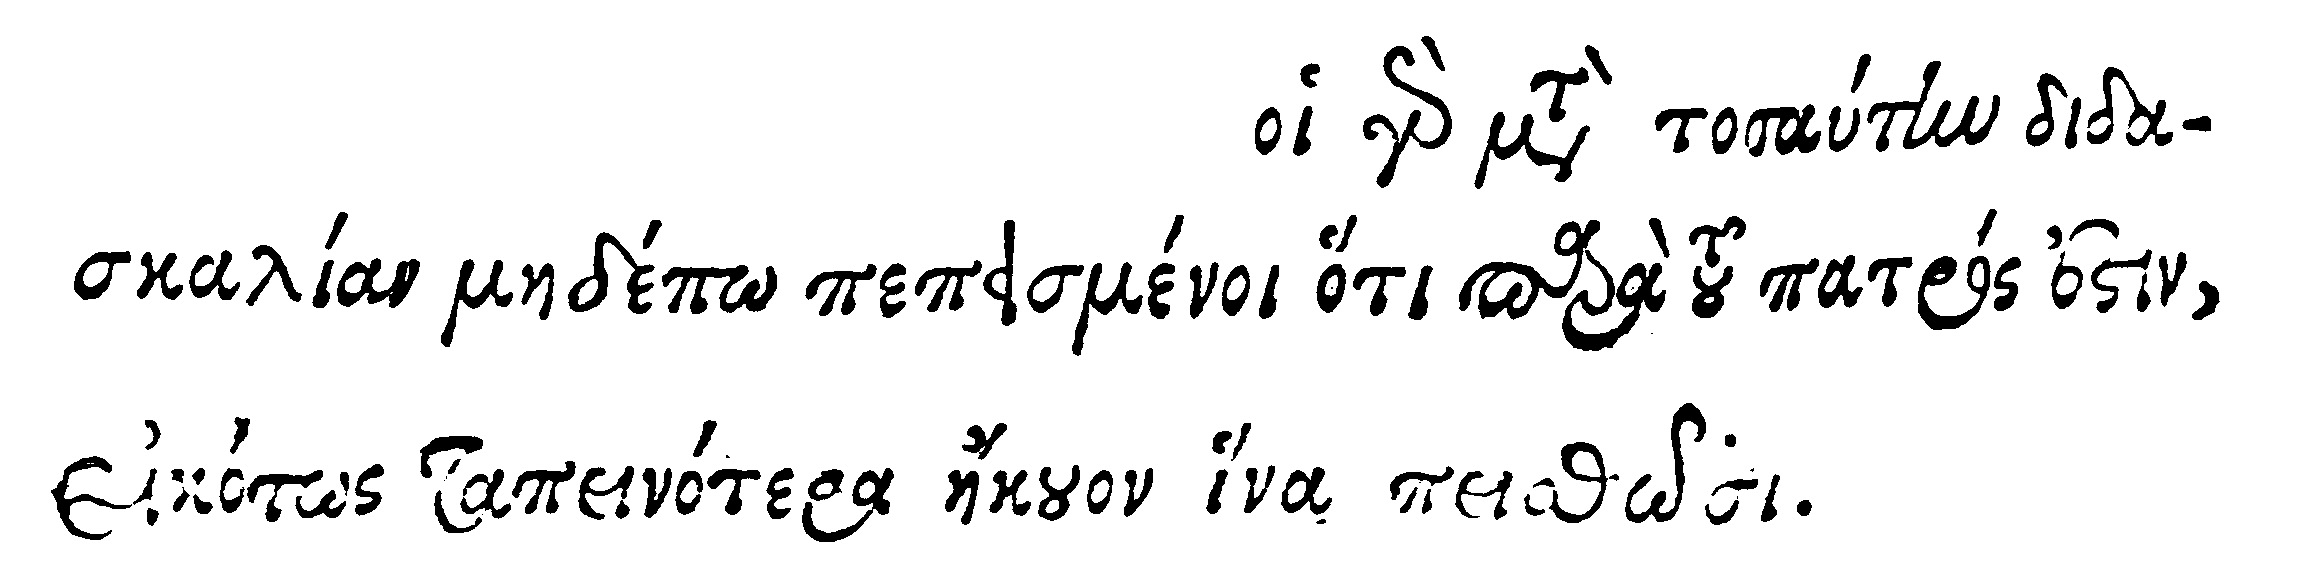 οἱ γὰρ μετὰ τοσαύτην διδα-
σκαλίαν μηδέπω πεπεισμένοι ὅτι παρὰ τοῦ πατρός ἐστιν,
εἰκότως ταπεινότερα ἤκουον ἵνα πεισθῶσι.